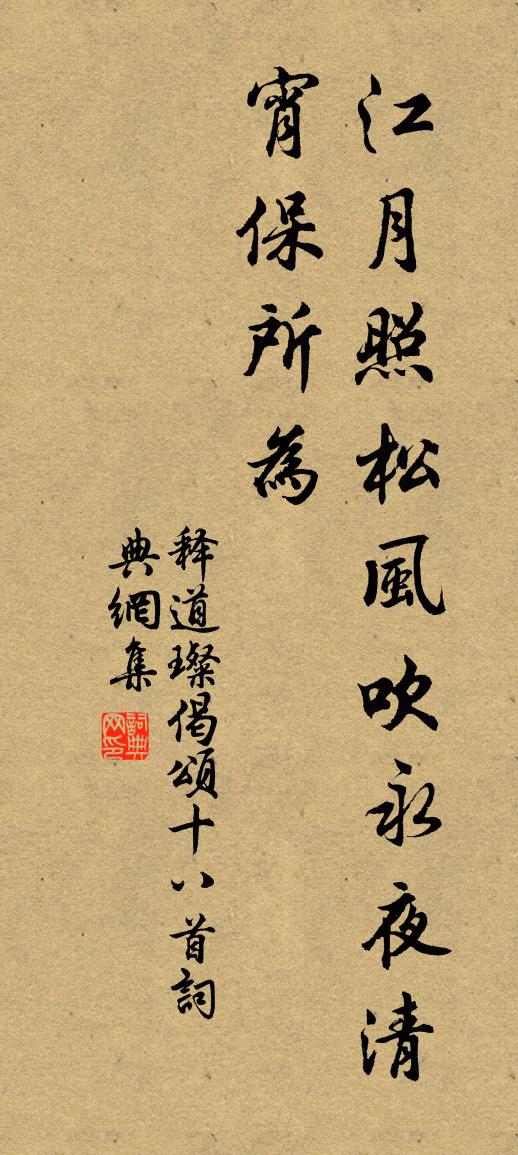 江月照松風吹永夜清
宵保所為
释道璨偈頌十八首詞
典網集
詞典
网印